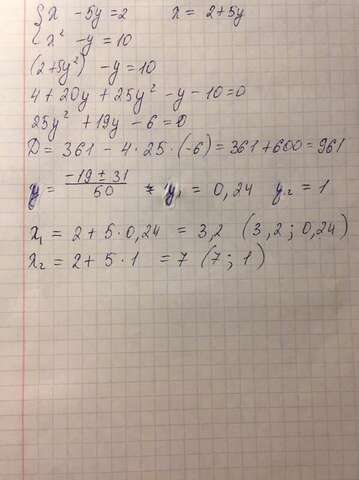 { x - 5y = 2 x = 2 + 5y
{ x² - y = 10
(2+5y²) - y = 10
4 + 20y + 25y² - y - 10 = 0
25y² + 19y - 6 = 0
D = 361 - 4 · 25 · (-6) = 361 + 600 = 961
y = (-19 ± 31)/50 y₁ = 0,24 y₂ = 1
x₁ = 2 + 5 · 0,24 = 3,2 (3,2 ; 0,24)
x₂ = 2 + 5 · 1 = 7 (7 ; 1)